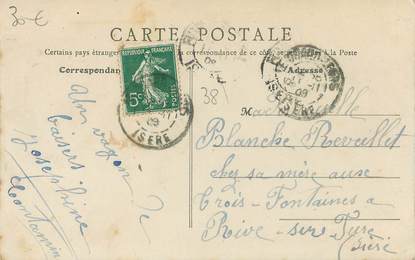 30€
CARTE POSTALE
Certains pays étrangers la correspondance de ce côté à la Poste
Correspondan
Adresse
REPUBLIQUE FRANÇAISE
5c
POSTES
ISERE
09
ISERE
09
38
Un wagon de
baisers
Joséphine
Contamin
Mademoiselle
Blanche Reveillet
chez sa mère aux
Trois-Fontaines à
Rive-sur-Fure
Isère